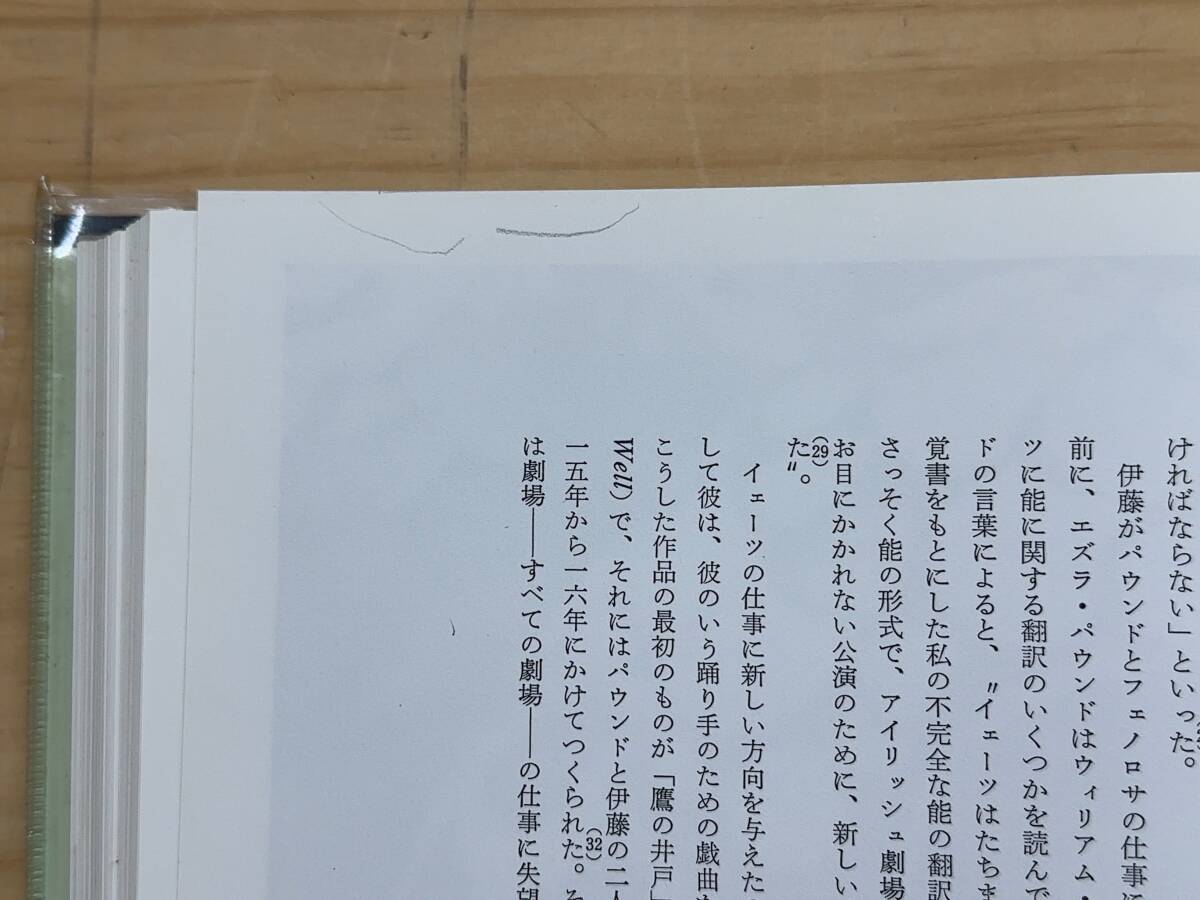 ければならない」といった。
伊藤がパウンドとフェノロサの仕事に
前に、エズラ・パウンドはウィリアム・
ツに能に関する翻訳のいくつかを読んで
ドの言葉によると、〝イェーツはたちま
覚書をもとにした私の不完全な能の翻訳
さっそく能の形式で、アイリッシュ劇場
お目にかかれない公演のために、新しい
た〟。(29)
イェーツの仕事に新しい方向を与えた
して彼は、彼のいう踊り手のための戯曲
こうした作品の最初のものが「鷹の井戸」
Well)で、それにはパウンドと伊藤の二人
一五年から一六年にかけてつくられた。(32)そ
は劇場――すべての劇場――の仕事に失望